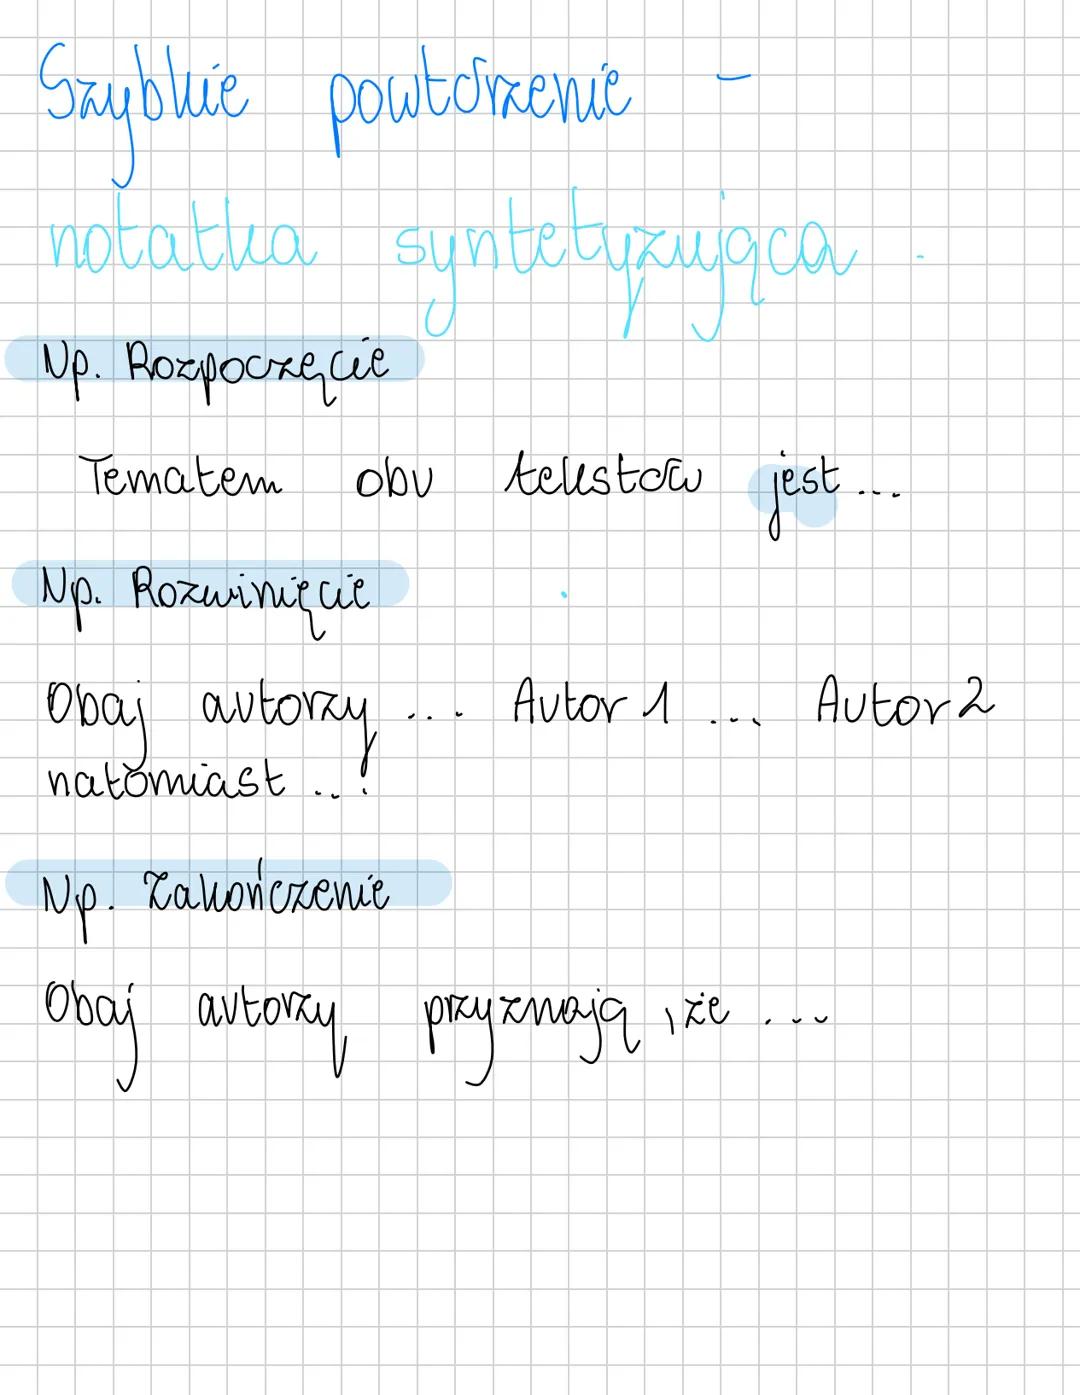 Szybkie powtórzenie -
notatka syntetyzująca.
Np. Rozpoczęcie
Tematem obu tekstów jest...
Np. Rozwinięcie
Obaj autorzy ... Autor 1 ... Autor 2
natomiast ...
Np. Zakończenie
Obaj autorzy przyznają, że ...